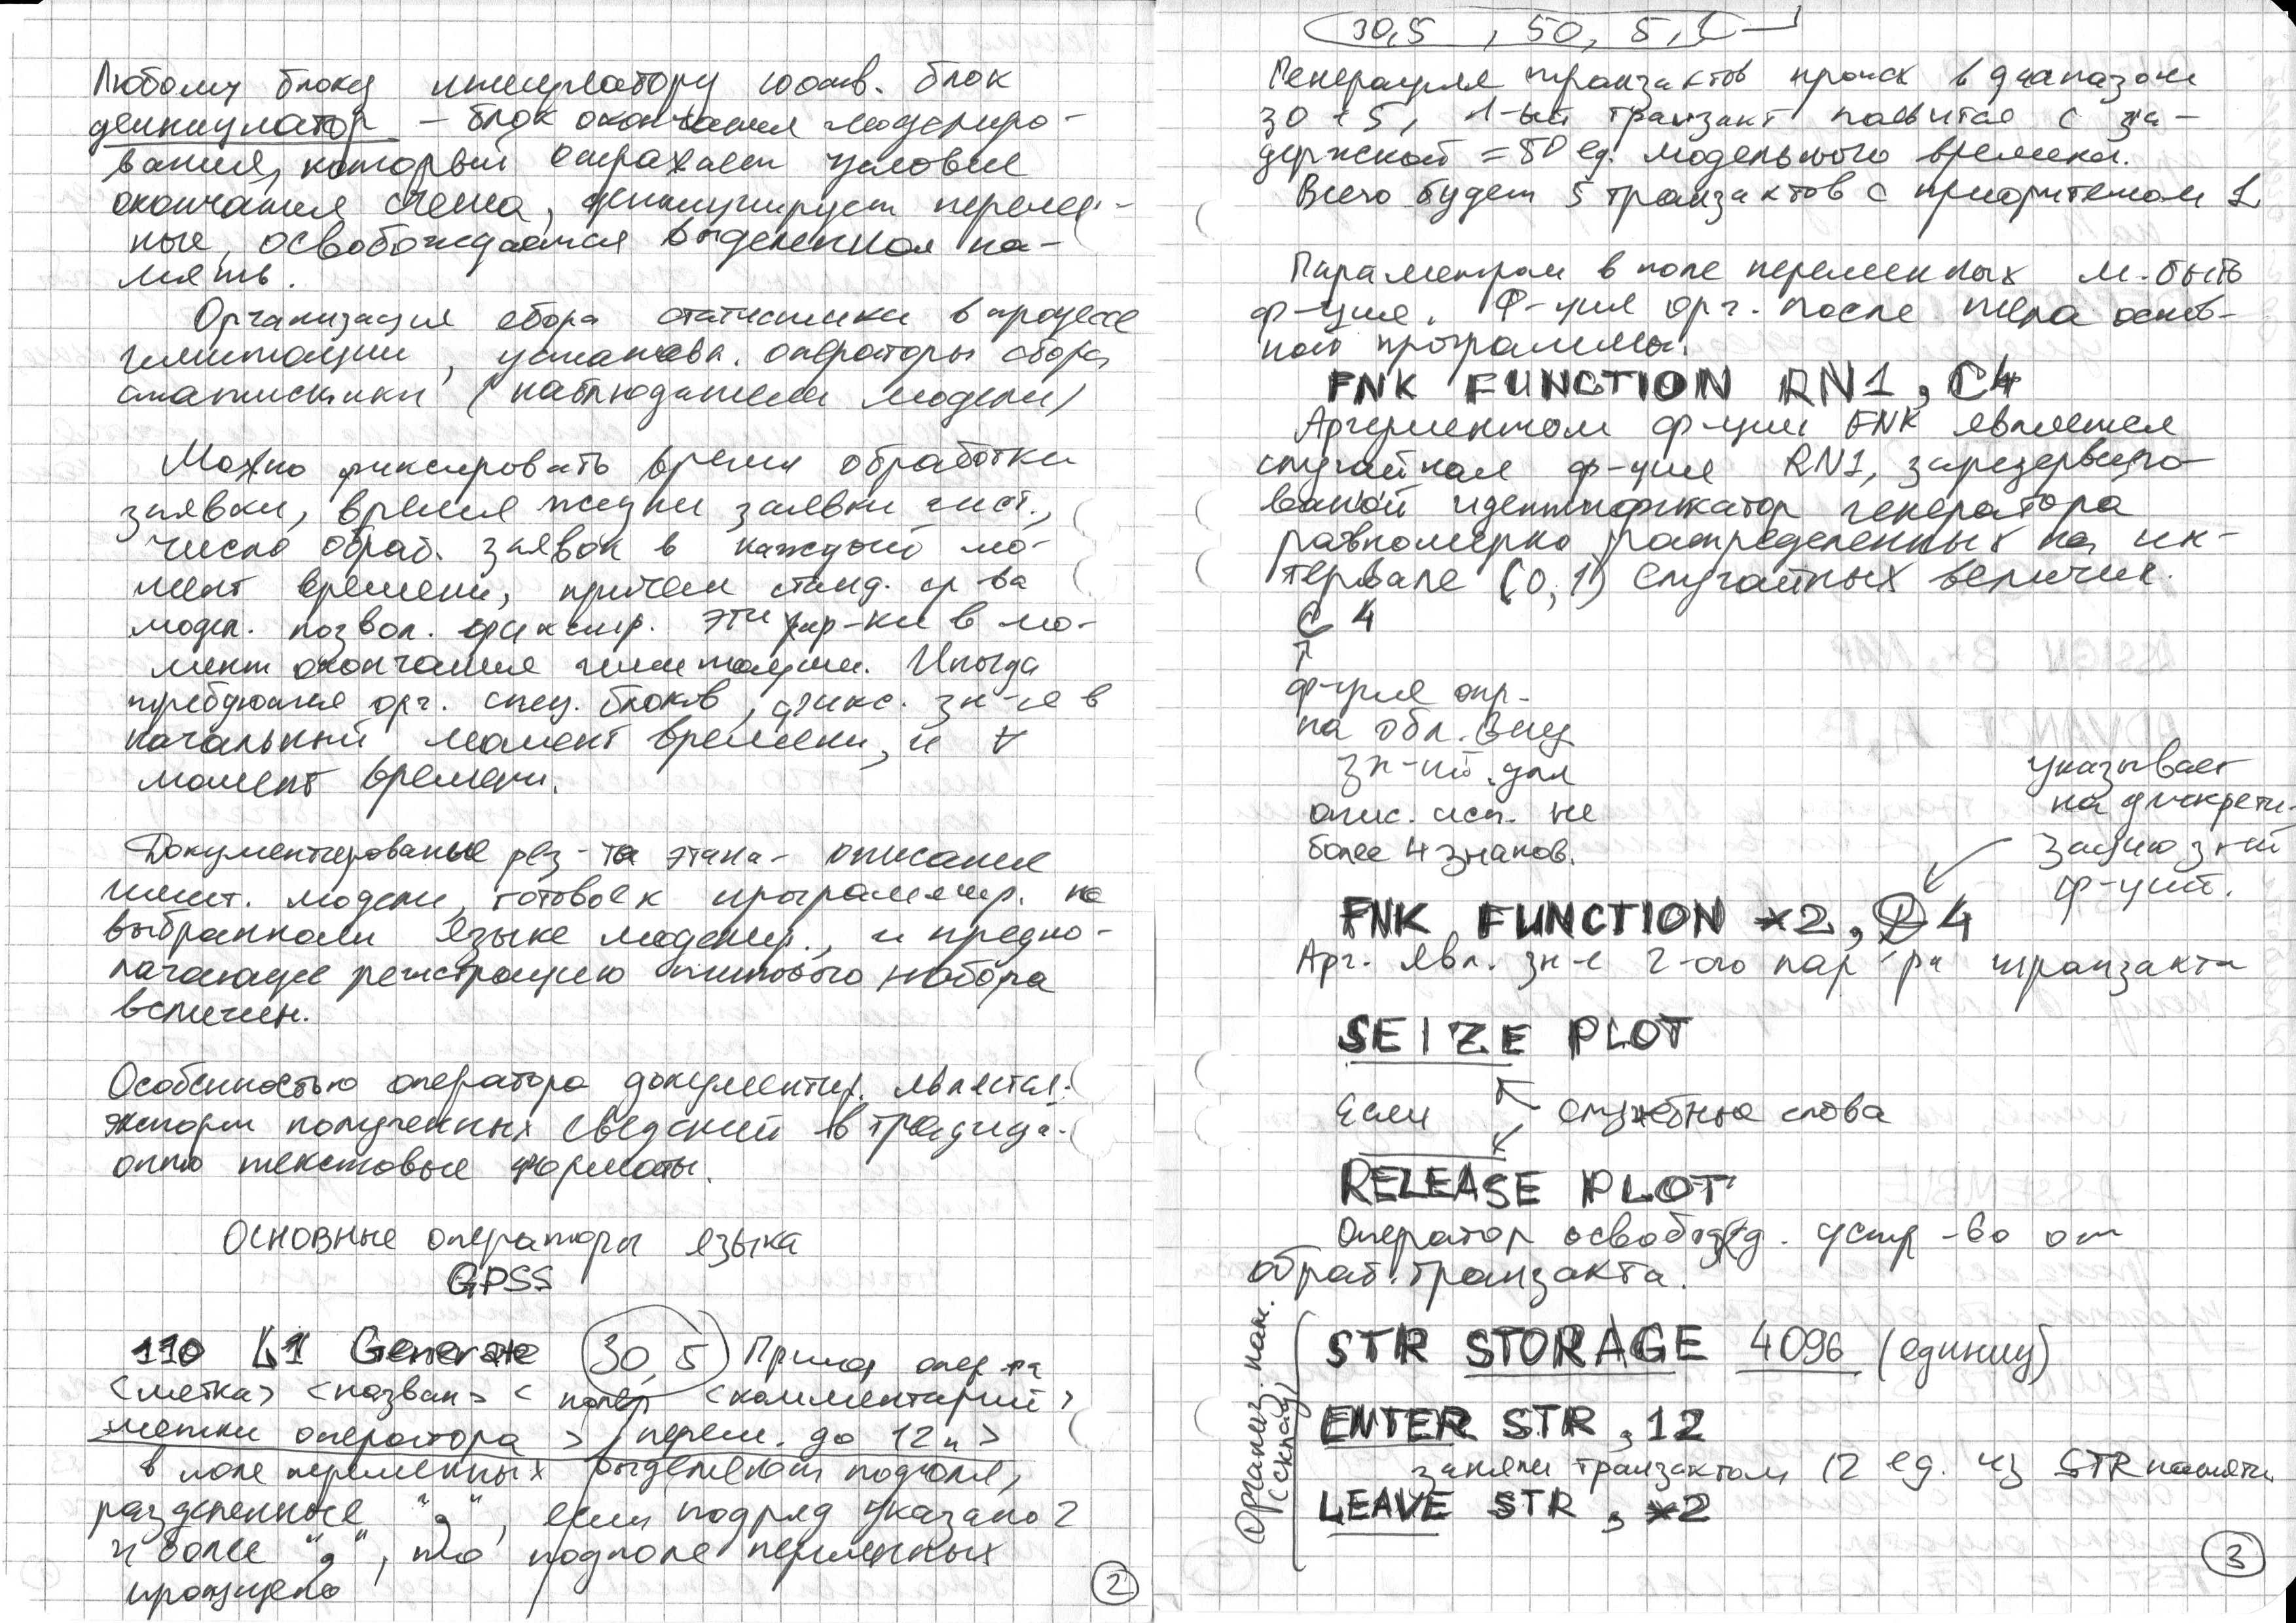 Любому блоку инициатору соотв. блок
деинициатор – блок окончания моделиро-
вания, который отражает условие
окончания счета, деинициирует перемен-
ные, освобождается выделенная па-
мять.
Организация сбора статистики в процессе
имитации, установ. операторы сбора
статистики (наблюдатели модели)
Можно фиксировать время обработки
заявки, время жизни заявки сист.,
число обраб. заявок в каждый мо-
мент времени, причем станд. ср-ва
модел. позвол. фиксир. эти хар-ки в мо-
мент окончания имитации. Иногда
требуются орг. спец. блоков, фикс. зн-я в
начальный момент времени, и ∀
момент времени.
Документирование рез-та этапа – описание
имит. модели, готовое к программир. на
выбранном языке моделир., и предпо-
лагающее регистрацию типового набора
величин.
Особенностью оператора документир. является:
экспорт полученных сведений в традици-
онно текстовые форматы.
Основные операторы языка
GPSS
110 L1 Generate (30, 5) Пример опер-ра
<метка> <назван> < полей <комментарий>
метки оператора > перем. до 12 и >
в поле переменных выделяют подполя,
разделенные ",", если подряд указано 2
и более ",", то подполе переменных
пропущено
2
30,5 , 50, 5, 1
Генерация транзактов происх в диапазоне
30 ± 5, 1-ый транзакт появится с за-
держкой = 50 ед. модельного времени.
Всего будет 5 транзактов с приоритетом 1
Параметром в поле переменных м. быть
ф-ция. Ф-ция орг. после тела основ-
ной программы.
FNK FUNCTION RN1, C4
Аргументом ф-ции FNK является
случайная ф-ция RN1, зарезервиро-
ваной идентификатор генератора
равномерно распределенных на ин-
тервале (0,1) случайных величин.
C 4
↑
ф-ция опр.
на обл. вещ
зн-ий, для
опис. исп. не
более 4 знаков.
указывает
на дискрети-
зацию зн-ий
ф-ций.
FNK FUNCTION *2, D4
Арг. явл. зн-е 2-ого пар-ра транзакта
SEIZE PLOT
Если служебные слова
RELEASE PLOT
Оператор освобожд. устр-во от
обраб. транзакта.
Организ. пам.
(склад)
STR STORAGE 4096 (единиц)
ENTER STR, 12
заняли транзактом 12 ед. из STR памяти
LEAVE STR, *2
3